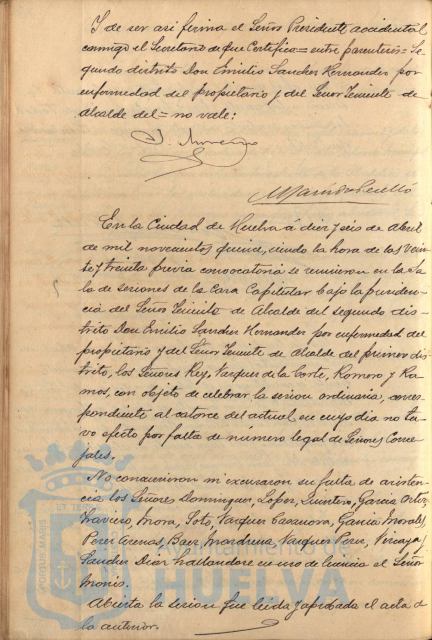 Y de ser asi firma el Señor Presidente accidental
conmigo el Secretario de que Certifico = entre parentesis = Se-
gundo distrito Don Emilio Sanchez Hernandez por
enfermedad del propietario y del Señor Teniente de
alcalde del = no vale:
J. Moreno
En la Ciudad de Huelva á diez y seis de Abril
de mil novecientos quince, siendo la hora de las vein-
te y treinta previa convocatoria se reunieron en la Sa-
la de sesiones de la Casa Capitular bajo la presiden-
cia del Señor Teniente de Alcalde del segundo dis-
trito Don Emilio Sanchez Hernandez por enfermedad del
propietario y del Señor Teniente de alcalde del primer dis-
trito, los Señores Rey, Vazquez de la Corte, Romero y Ra-
mos, con objeto de celebrar la sesion ordinaria, corres-
pondiente al catorce del actual en cuyo dia no tu-
vo efecto por falta de número legal de Señores Conce-
jales.
No concurrieron ni excusaron su falta de asisten-
cia los Señores Dominguez, Lopez, Quintero, Garcia Ortiz,
Travieso, Mora, Soto, Vazquez Casanova, Garcia Morales,
Perez Arenas, Baez, Mondrena, Vazquez Perez, Vizcaya y
Sanchez Diaz hallandose en uso de licencia el Señor
Monis.
Abierta la sesion fue leida y aprobada el acta de
la anterior.
PORTUS MARIS ET TERRÆ
Ayuntamiento
HUELVA